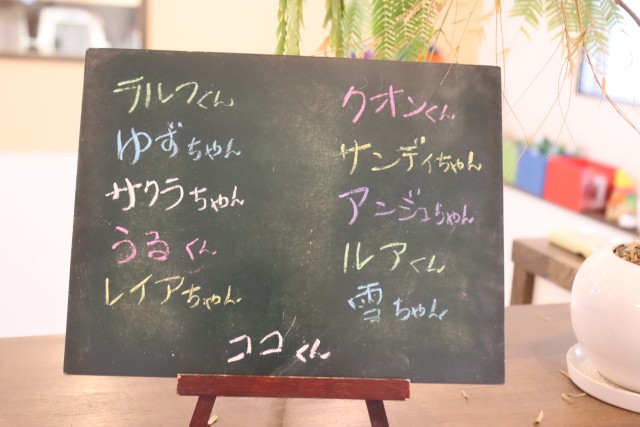 テルフくん
ゆずちゃん
サクラちゃん
うるくん
レイアちゃん
クオンくん
サンディちゃん
アンジュちゃん
ルアくん
雪ちゃん
ココくん